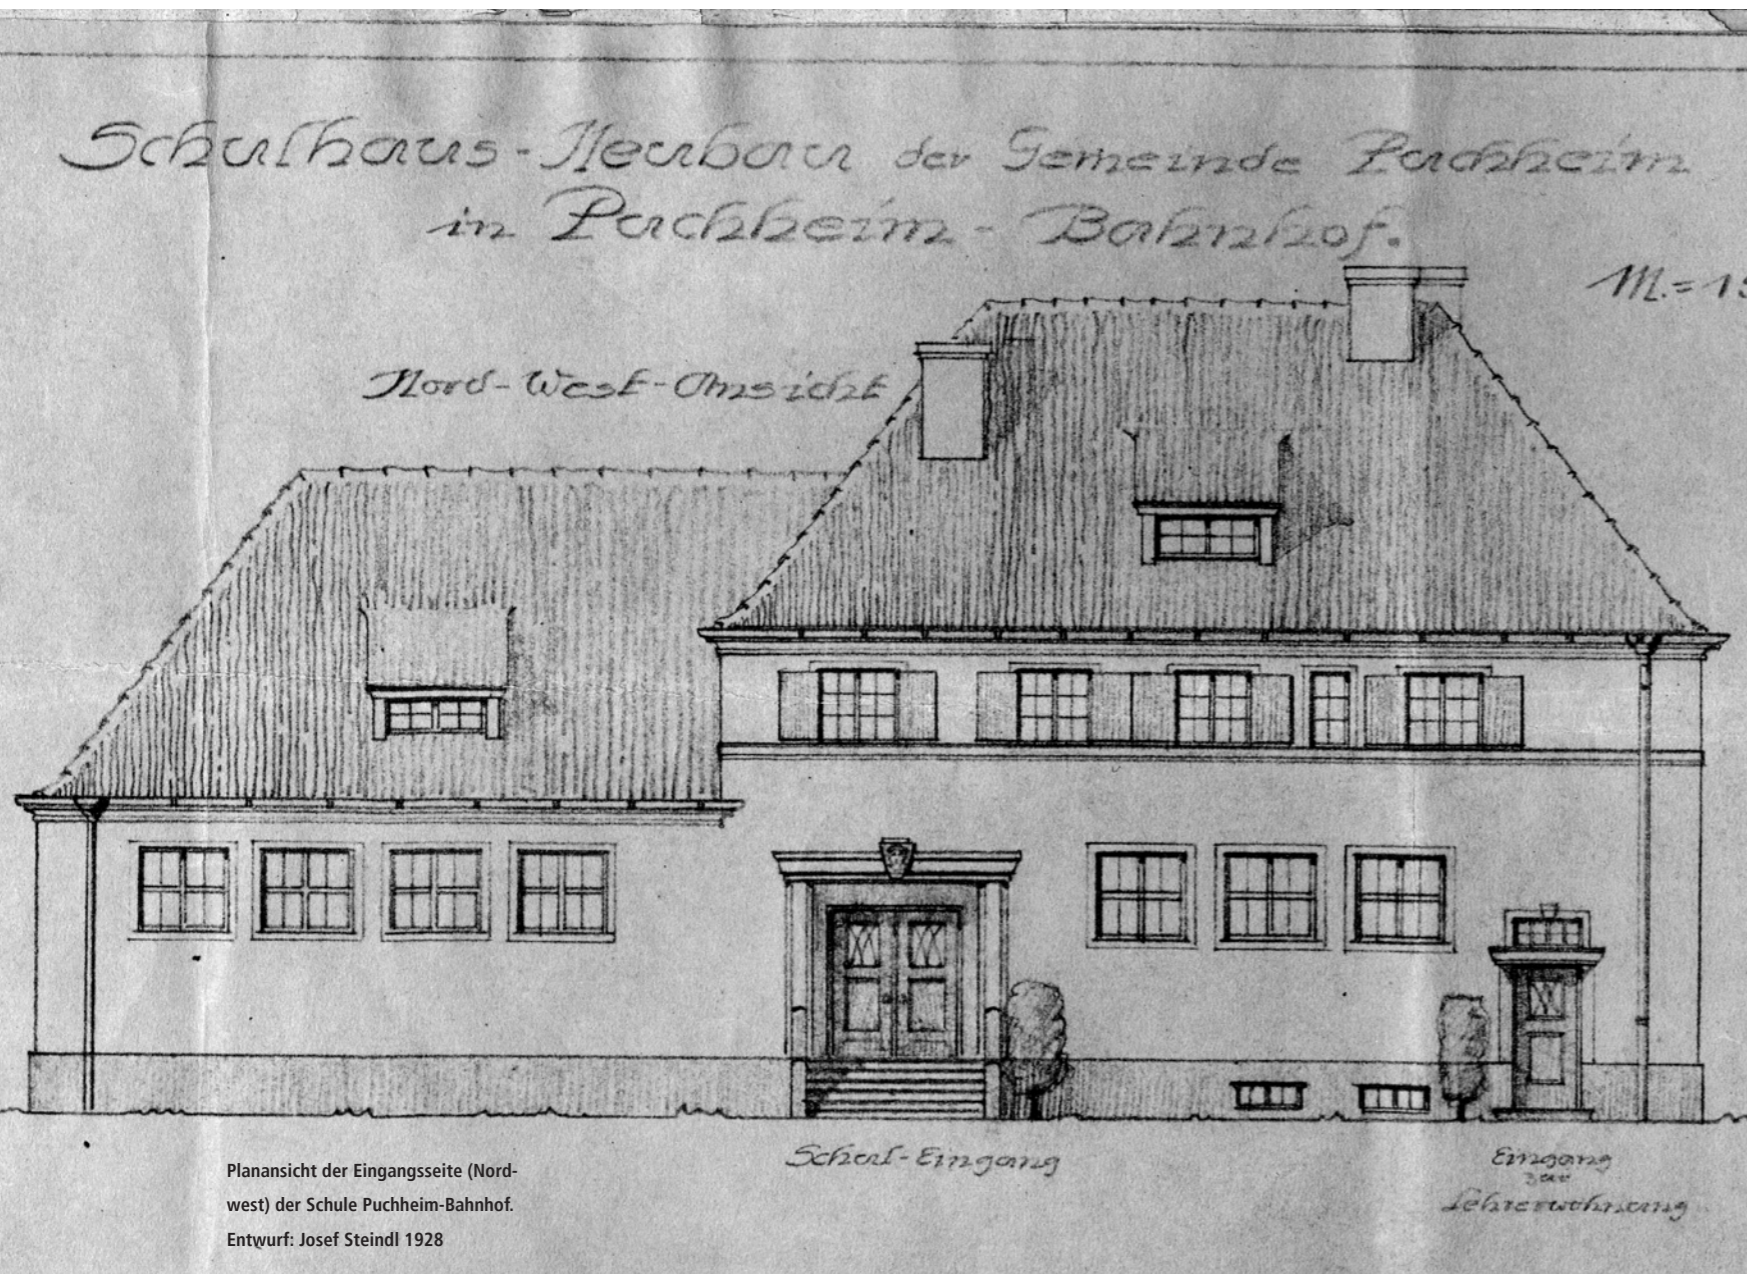 Schulhaus-Neubau der Gemeinde Puchheim
in Puchheim-Bahnhof.
M.=1
Nord-West-Ansicht
Schul-Eingang
Eingang
zur
Lehrerwohnung
Planansicht der Eingangsseite (Nord-
west) der Schule Puchheim-Bahnhof.
Entwurf: Josef Steindl 1928